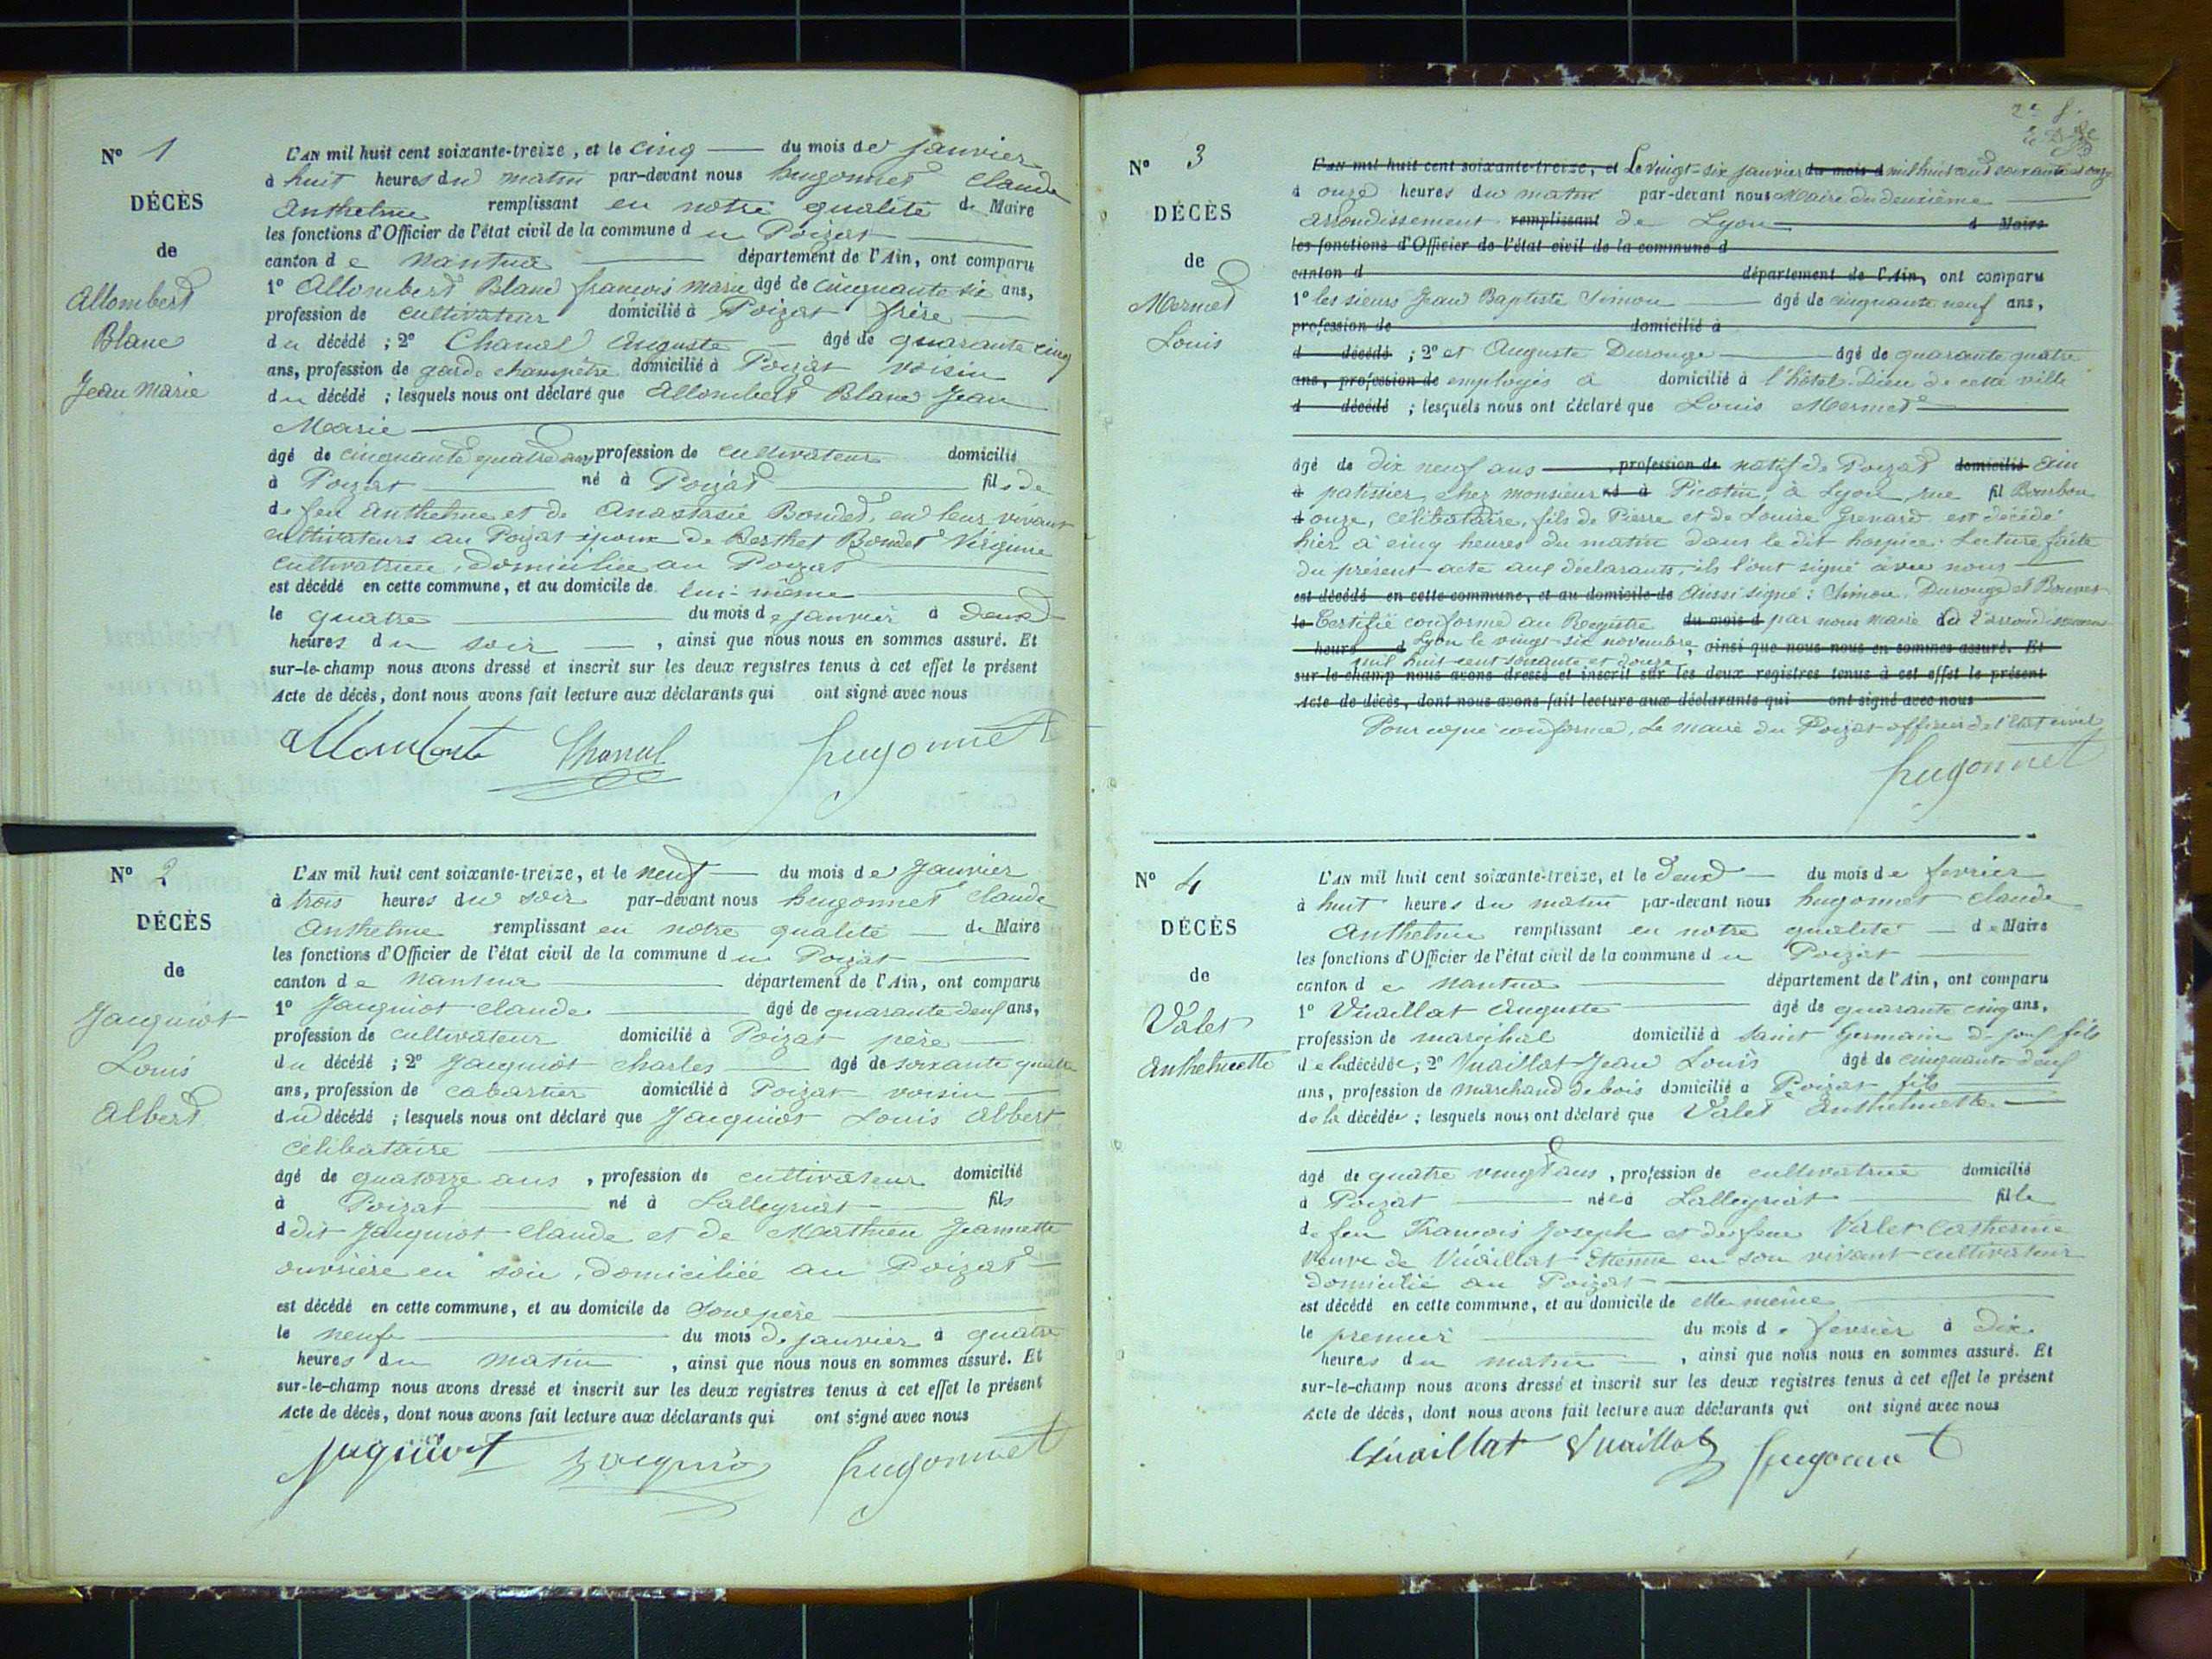 N° 1
DÉCÈS
de
Allombert
Blanc
Jean Marie
L'AN mil huit cent soixante-treize, et le cinq du mois de janvier
à huit heures du matin par-devant nous hugonnet Claude
Anthelme remplissant en notre qualité de Maire
les fonctions d'Officier de l'état civil de la commune du Poizat
canton de Nantua département de l'Ain, ont comparu
1° Allombert Blanc françois marie âgé de cinquante six ans,
profession de cultivateur domicilié à Poizat frère
du décédé ; 2° Chanel Auguste âgé de quarante cinq
ans, profession de garde champêtre domicilié à Poizat voisin
du décédé ; lesquels nous ont déclaré que Allombert Blanc Jean
Marie
âgé de cinquante quatre ans, profession de cultivateur domicilié
à Poizat né à Poizat fils de
de feu Anthelme et de Anastasie Boudet, en leur vivant
cultivateurs au Poizat époux de Berthet Boudet Virginie
cultivatrice, domiciliée au Poizat
est décédé en cette commune, et au domicile de lui-même
le quatre du mois de janvier à deux
heures du soir, ainsi que nous nous en sommes assuré. Et
sur-le-champ nous avons dressé et inscrit sur les deux registres tenus à cet effet le présent
Acte de décès, dont nous avons fait lecture aux déclarants qui ont signé avec nous
Allombert Chanel hugonnet
N° 2
DÉCÈS
de
Jacquiot
Louis
Albert
L'AN mil huit cent soixante-treize, et le neuf du mois de Janvier
à trois heures du soir par-devant nous hugonnet Claude
Anthelme remplissant en notre qualité de Maire
les fonctions d'Officier de l'état civil de la commune du Poizat
canton de Nantua département de l'Ain, ont comparu
1° Jacquiot Claude âgé de quarante deux ans,
profession de cultivateur domicilié à Poizat père
du décédé ; 2° Jacquiot Charles âgé de soixante quatre
ans, profession de cabartier domicilié à Poizat voisin
du décédé ; lesquels nous ont déclaré que Jacquiot Louis Albert
célibataire
âgé de quatorze ans, profession de cultivateur domicilié
à Poizat né à Lalleyriat fils
dudit Jacquiot Claude et de Marthieu Jeannette
ouvrière en soie, domiciliée au Poizat
est décédé en cette commune, et au domicile de son père
le neuf du mois de janvier à quatre
heures du matin, ainsi que nous nous en sommes assuré. Et
sur-le-champ nous avons dressé et inscrit sur les deux registres tenus à cet effet le présent
Acte de décès, dont nous avons fait lecture aux déclarants qui ont signé avec nous
Jaquiot Jacquio hugonnet
N° 3
DÉCÈS
de
Mermet
Louis
L'AN mil huit cent soixante-treize, et Le vingt-six janvier du mois d mil huit cent soixante et onze
à onze heures du matin par-devant nous Maire du deuxième
arrondissement remplissant de Lyon d Maire
les fonctions d'Officier de l'état civil de la commune d
canton d département de l'Ain, ont comparu
1° les sieurs Jean Baptiste Simon âgé de cinquante neuf ans,
profession de domicilié à
d décédé ; 2° et Auguste Durouge âgé de quarante quatre
ans, profession de employés à domicilié à l'hôtel-Dieu de cette ville
d décédé ; lesquels nous ont déclaré que Louis Mermet
âgé de dix neuf ans, profession de natif de Poizat domicilié Ain
à patissier chez monsieur né à Picotin, à Lyon, rue fil Bourbon
d onze, célibataire, fils de Pierre et de Louise Grenard est décédé
hier à cinq heures du matin dans le dit hospice. Lecture faite
du présent acte aux déclarants, ils l'ont signé avec nous
est décédé en cette commune, et au domicile de Aussi signé : Simon, Durouge et Bouvet
le Certifié conforme au Registre du mois d par nous maire du 2e arrondissement
heure d Lyon le vingt-six novembre, ainsi que nous nous en sommes assuré. Et
mil huit cent soixante et douze
sur-le-champ nous avons dressé et inscrit sur les deux registres tenus à cet effet le présent
Acte de décès, dont nous avons fait lecture aux déclarants qui ont signé avec nous
Pour copie conforme, Le maire du Poizat officier de l'état civil
hugonnet
N° 4
DÉCÈS
de
Valet
Anthelmette
L'AN mil huit cent soixante-treize, et le deux du mois de fevrier
à huit heures du matin par-devant nous hugonnet Claude
Anthelme remplissant en notre qualité de Maire
les fonctions d'Officier de l'état civil de la commune du Poizat
canton de Nantua département de l'Ain, ont comparu
1° Vuaillat Auguste âgé de quarante cinq ans,
profession de maréchal domicilié à Saint Germain de joux fils
de la décédée ; 2° Vuaillat Jean Louis âgé de cinquante deux
ans, profession de marchand de bois domicilié à Poizat fils
de la décédée ; lesquels nous ont déclaré que Valet Anthelmette
âgé de quatre vingt ans, profession de cultivatrice domicilié
à Poizat née à Lalleyriat fille
de feu François Joseph et de feue Valet Catherine
veuve de Vuaillat Etienne en son vivant cultivateur
domicilié au Poizat
est décédé en cette commune, et au domicile de elle même
le premier du mois de fevrier à dix
heures du matin, ainsi que nous nous en sommes assuré. Et
sur-le-champ nous avons dressé et inscrit sur les deux registres tenus à cet effet le présent
Acte de décès, dont nous avons fait lecture aux déclarants qui ont signé avec nous
Vuaillat Vuaillat hugonnet